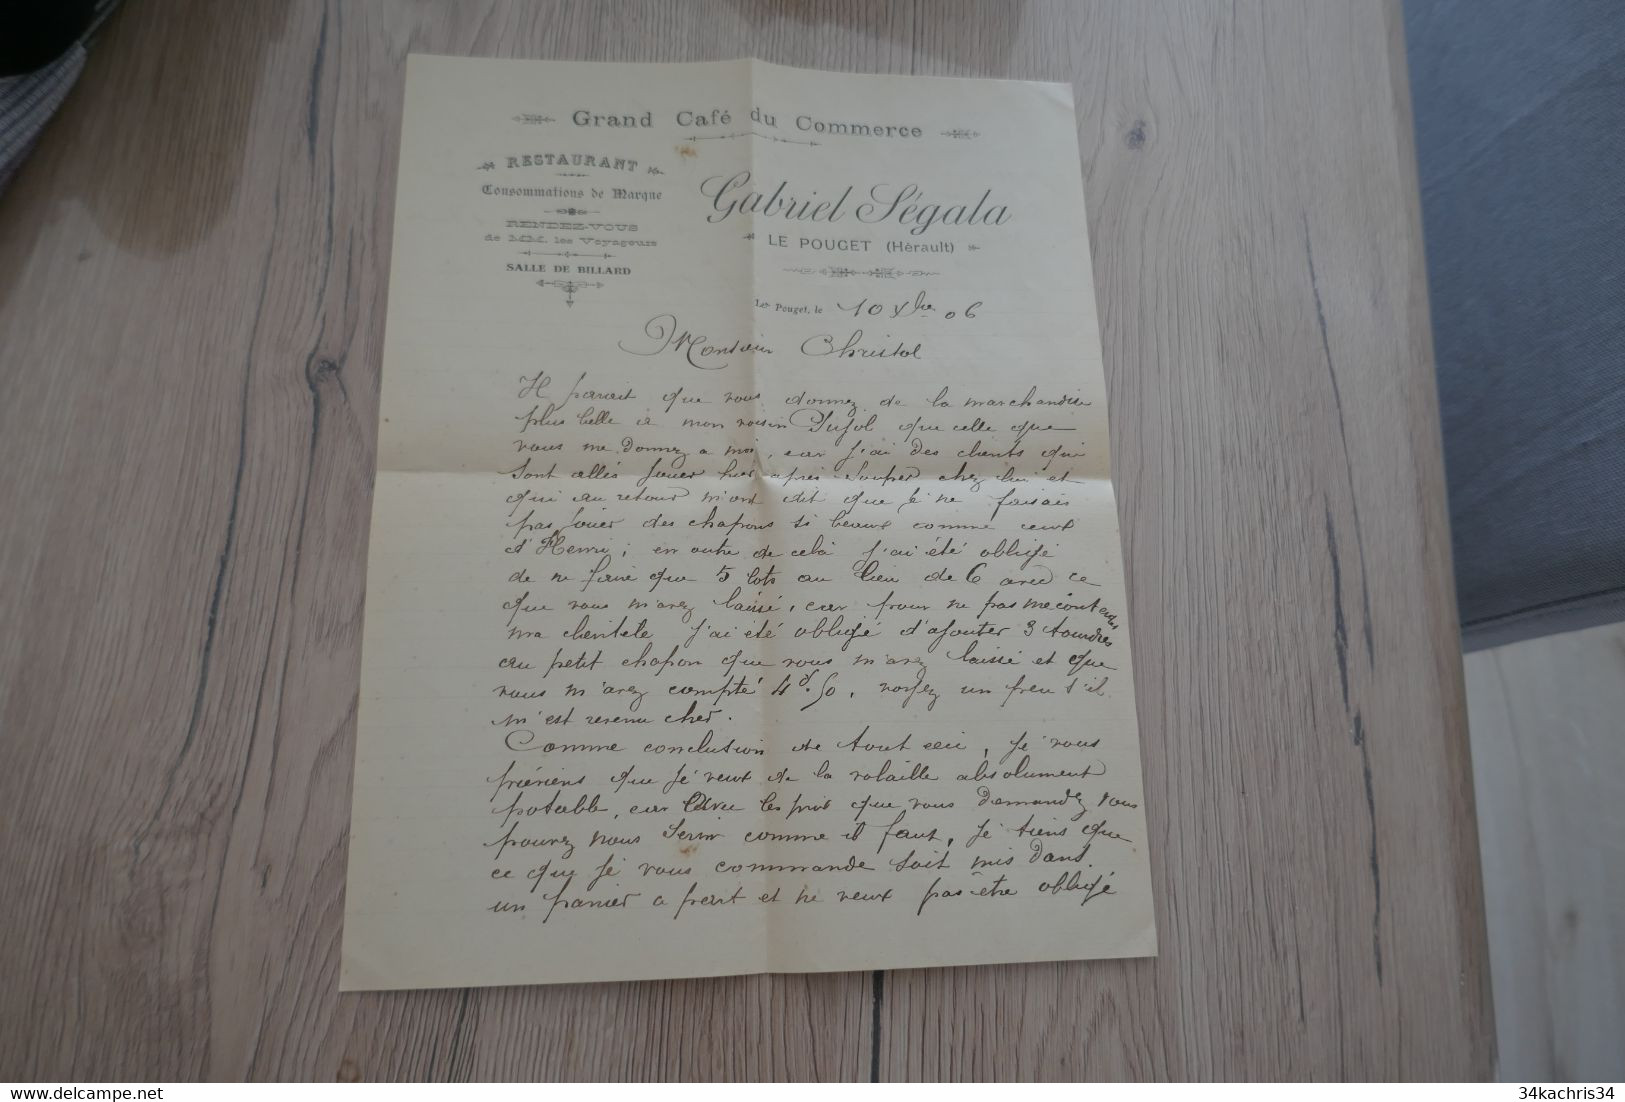 Grand Café du Commerce
RESTAURANT
Consommations de Marque
RENDEZ-VOUS
de MM. les Voyageurs
SALLE DE BILLARD
Gabriel Ségala
LE POUGET (Hérault)
Le Pouget, le 10 Xbre 06
Monsieur Christol
Il parait que vous donnez de la marchandise
plus belle à mon voisin Pujol que celle que
vous me donnez a moi, car j'ai des clients qui
sont allés jouer hier après souper chez lui et
qui au retour m'ont dit que je ne faisais
pas jouer des chapons si beaux comme ceux
d'Henri; en outre de celà j'ai été obligé
de ne faire que 5 lots au lieu de 6 avec ce
que vous m'avez laissé, car pour ne pas mécontenter
ma clientele j'ai été obligé d'ajouter 3 tourdres
au petit chapon que vous m'avez laissé et que
vous m'avez compté 4f.50, voyez un peu s'il
m'est revenu cher.
Comme conclusion de tout ceci, je vous
préviens que je veux de la volaille absolument
potable, car avec les prix que vous demandez vous
pouvez nous servir comme il faut, je tiens que
ce que je vous commande soit mis dans
un panier a part et ne veux pas être obligé
34kachris34